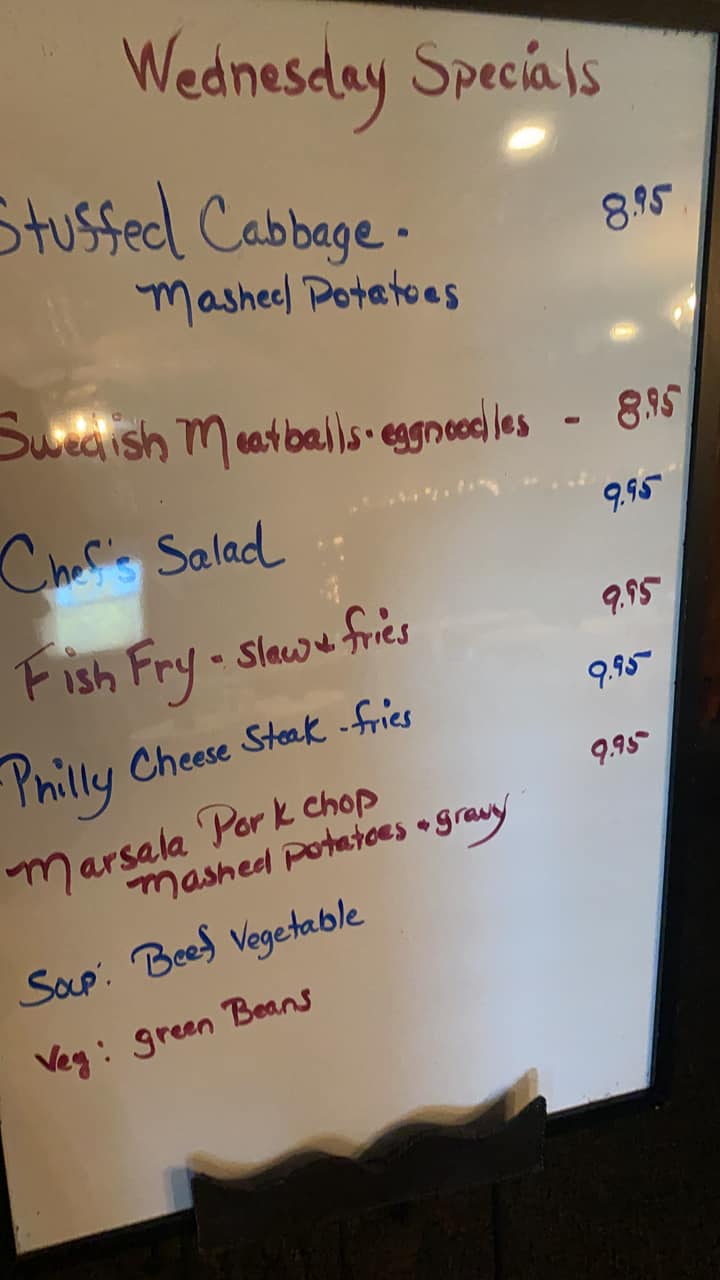 Wednesday Specials
Stuffed Cabbage - 8.95
Mashed Potatoes
Swedish Meatballs - eggnoodles - 8.95
Chef's Salad 9.95
Fish Fry - Slaw & fries 9.95
Philly Cheese Steak - fries 9.95
Marsala Pork chop 9.95
Mashed Potatoes & gravy
Soup: Beef Vegetable
Veg: green Beans